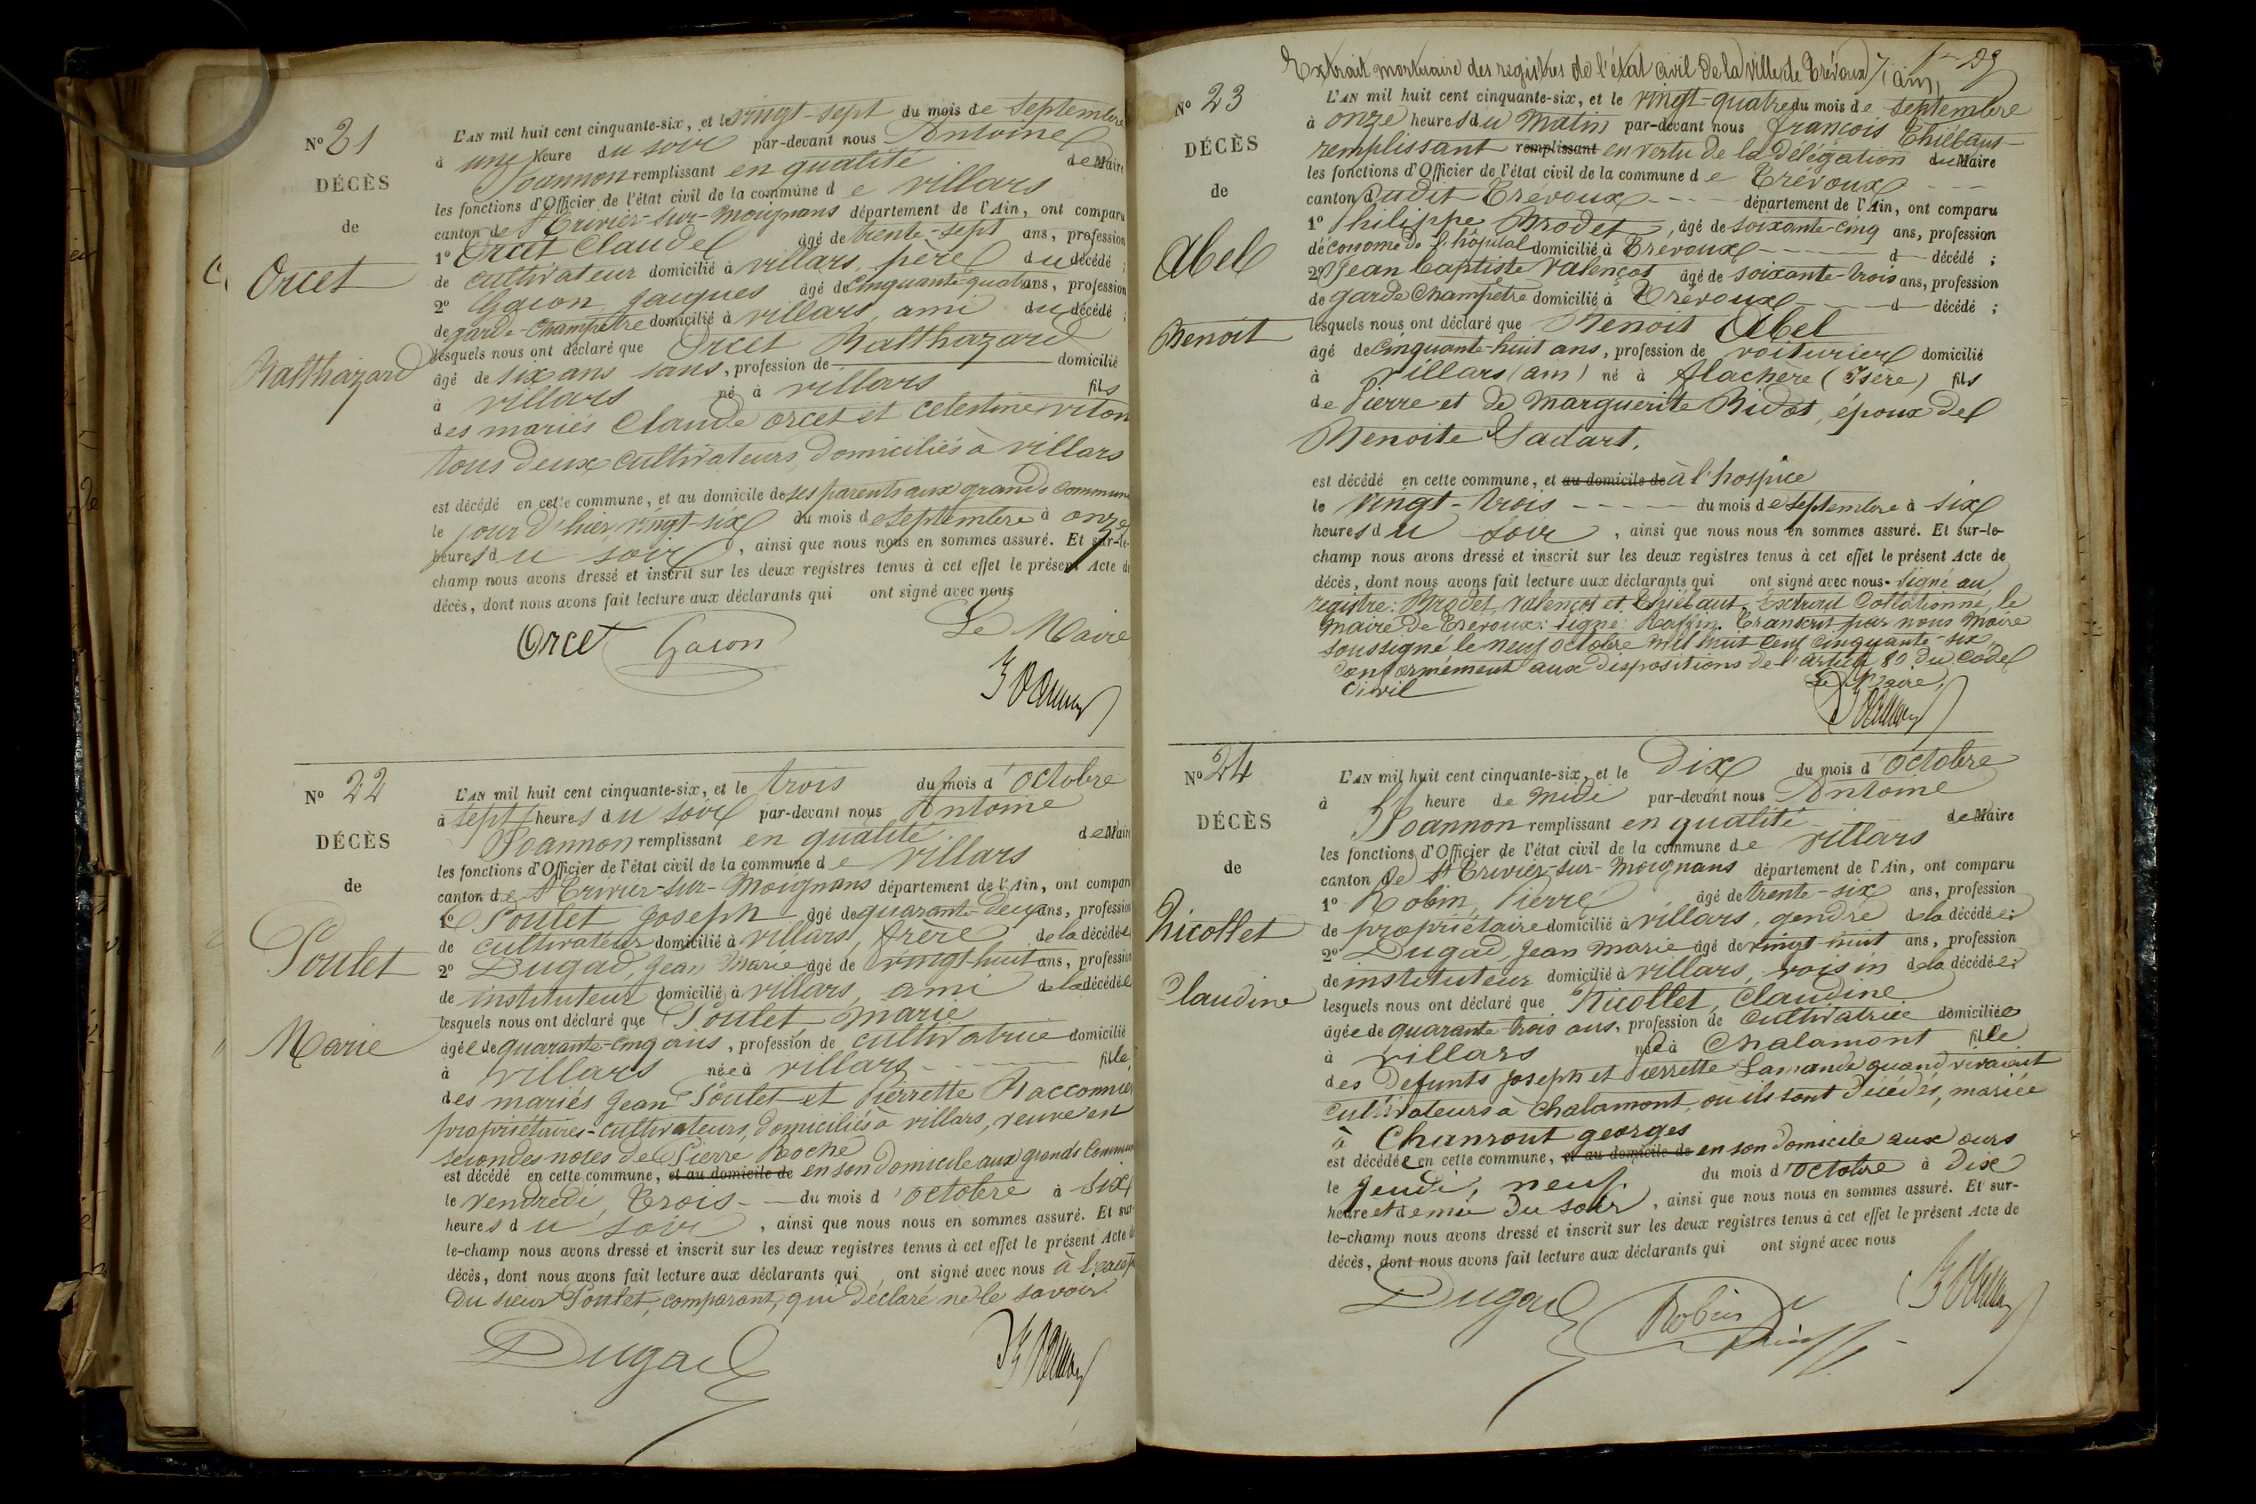 N° 21
DÉCÈS
de
Orcet
Balthazard
L'AN mil huit cent cinquante-six, et le vingt-sept du mois de septembre
à une heure du soir par-devant nous Antoine
Joannon remplissant en qualité de Maire
les fonctions d'Officier de l'état civil de la commune de villars
canton de St Trivier-sur-Moignans département de l'Ain, ont comparu
1° Orcet Claude âgé de trente-sept ans, profession
de cultivateur domicilié à villars, père du décédé ;
2° Gacon Jacques âgé de cinquante-quatre ans, profession
de garde-champêtre domicilié à villars, ami du décédé ;
lesquels nous ont déclaré que Orcet Balthazard
âgé de six ans sans, profession de domicilié
à villars né à villars fils
des mariés Claude Orcet et Celestine viton
tous deux cultivateurs, domiciliés à villars
est décédé en cette commune, et au domicile de ses parents aux grands Communs
le jour d'hier vingt-six du mois de septembre à onze
heures du soir, ainsi que nous nous en sommes assuré. Et sur-le-
champ nous avons dressé et inscrit sur les deux registres tenus à cet effet le présent Acte de
décès, dont nous avons fait lecture aux déclarants qui ont signé avec nous
Orcet Gacon Le Maire
Joannon
N° 22
DÉCÈS
de
Poulet
Marie
L'AN mil huit cent cinquante-six, et le trois du mois d'octobre
à sept heures du soir par-devant nous Antoine
Joannon remplissant en qualité de Maire
les fonctions d'Officier de l'état civil de la commune de villars
canton de St Trivier-sur-Moignans département de l'Ain, ont comparu
1° Poulet Joseph âgé de quarante-deux ans, profession
de cultivateur domicilié à villars, frère de la décédée
2° Dugad, Jean Marie âgé de vingt huit ans, profession
de instituteur domicilié à villars, ami de la décédée
lesquels nous ont déclaré que Poulet Marie
âgée de quarante-cinq ans, profession de cultivatrice domicilié
à villars née à villars fille
des mariés Jean Poulet et Pierrette Racconnier
propriétaires-cultivateurs, domiciliés à villars, veuve en
secondes noces de Pierre Roche
est décédé en cette commune, et au domicile de en son domicile aux grands Communs
le vendredi, trois du mois d'octobre à six
heures du soir, ainsi que nous nous en sommes assuré. Et sur-
le-champ nous avons dressé et inscrit sur les deux registres tenus à cet effet le présent Acte de
décès, dont nous avons fait lecture aux déclarants qui ont signé avec nous à l'except
du sieur Poulet, comparant, qui déclaré ne le savoir.
Dugad Joannon
Extrait mortuaire des registres de l'état civil de la ville de Trévoux (ain)
N° 23
DÉCÈS
de
Abel
Benoit
L'AN mil huit cent cinquante-six, et le vingt-quatre du mois de septembre
à onze heures du matin par-devant nous françois Thiébaut
remplissant remplissant en vertu de la délégation du Maire
les fonctions d'Officier de l'état civil de la commune de Trévoux
canton dudit Trévoux département de l'Ain, ont comparu
1° Philippe Brodet, âgé de soixante-cinq ans, profession
d'économe de l'hôpital domicilié à Trévoux d décédé ;
2° Jean baptiste Valençot âgé de soixante-trois ans, profession
de garde champêtre domicilié à Trévoux d décédé ;
lesquels nous ont déclaré que Benoit Abel
âgé de cinquante-huit ans, profession de voiturier domicilié
à villars (ain) né à flachère (Isère) fils
de Pierre et de Marguerite Bidot, époux de
Benoite Sadart.
est décédé en cette commune, et au domicile de à l'hospice
le vingt-trois du mois de septembre à six
heures du soir, ainsi que nous nous en sommes assuré. Et sur-le-
champ nous avons dressé et inscrit sur les deux registres tenus à cet effet le présent Acte de
décès, dont nous avons fait lecture aux déclarants qui ont signé avec nous. Signé au
registre : Brodet, valençot et Thiébaut. Extrait Collationné, le
maire de Trévoux : signé : Raffin. Transcrit par nous Maire
soussigné le neuf octobre mil huit cent cinquante-six,
conformément aux dispositions de l'article 80 du Code
civil
Le Maire,
Joannon
N° 24
DÉCÈS
de
Nicollet
Claudine
L'AN mil huit cent cinquante-six, et le Dix du mois d'octobre
à heure de midi par-devant nous Antoine
Joannon remplissant en qualité de Maire
les fonctions d'Officier de l'état civil de la commune de villars
canton de St Trivier-sur-Moignans département de l'Ain, ont comparu
1° Robin, Pierre âgé de trente-six ans, profession
de propriétaire domicilié à villars, gendre de la décédée ;
2° Dugad, Jean Marie âgé de vingt-huit ans, profession
de instituteur domicilié à villars, voisin de la décédée ;
lesquels nous ont déclaré que Nicollet, Claudine
âgée de quarante trois ans, profession de cultivatrice domiciliée
à villars née à Chalamont fille
des Defunts Joseph et Pierrette Lamande quand vivaient
cultivateurs à Chalamont, où ils sont décédés, mariée
à Chanront georges
est décédée en cette commune, et au domicile de en son domicile aux ours
le jeudi, neuf du mois d'octobre à dix
heure et demie du soir, ainsi que nous nous en sommes assuré. Et sur-
le-champ nous avons dressé et inscrit sur les deux registres tenus à cet effet le présent Acte de
décès, dont nous avons fait lecture aux déclarants qui ont signé avec nous
Dugad Robin Joannon